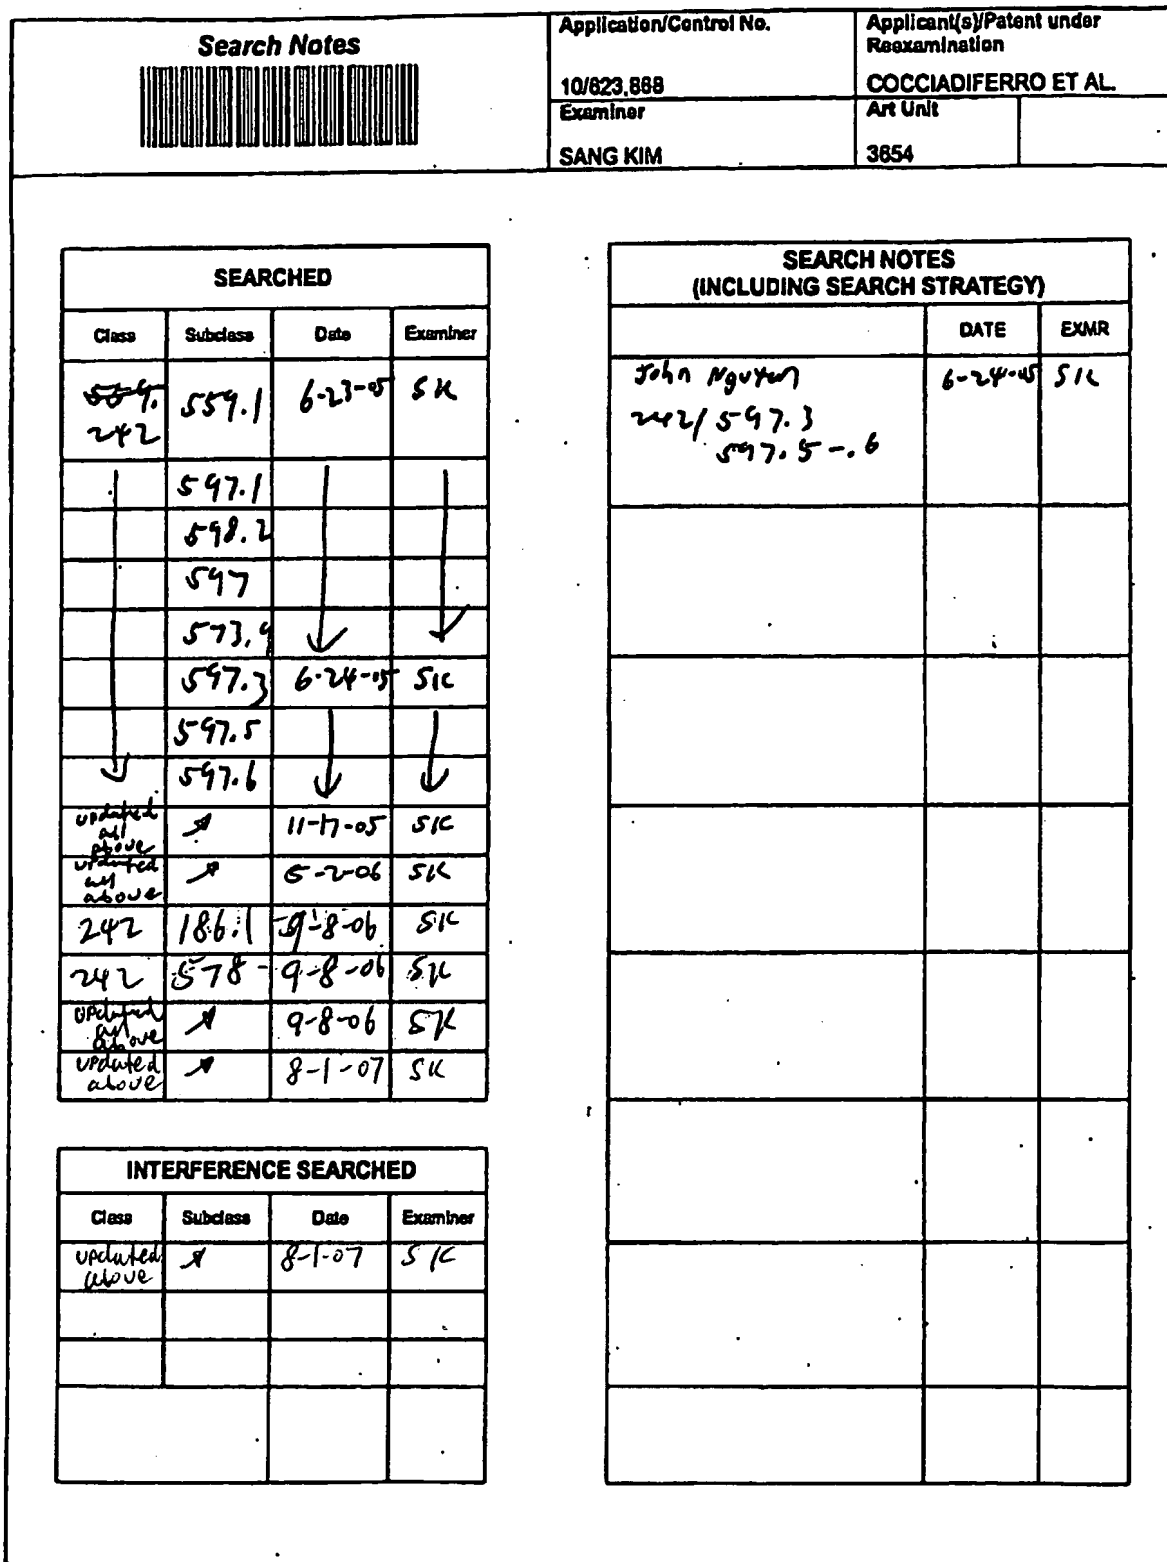 Search Notes
Application/Control No.
10/823,868
Applicant(s)/Patent under
Reexamination
COCCIADIFERRO ET AL.
Examiner
SANG KIM
Art Unit
3654
SEARCHED
Class Subclass Date Examiner
559.
242 559.1 6-23-05 SK
597.1
598.2
597
573.9
597.3 6-24-05 SK
597.5
597.6
updated
all
above 11-17-05 SK
updated
all
above 5-2-06 SK
242 186.1 9-8-06 SK
242 578 9-8-06 SK
updated
all
above 9-8-06 SK
updated
above 8-1-07 SK
INTERFERENCE SEARCHED
Class Subclass Date Examiner
updated
above 8-1-07 SK
SEARCH NOTES
(INCLUDING SEARCH STRATEGY)
DATE EXMR
John Nguyen 6-24-05 SK
242/597.3
597.5-.6